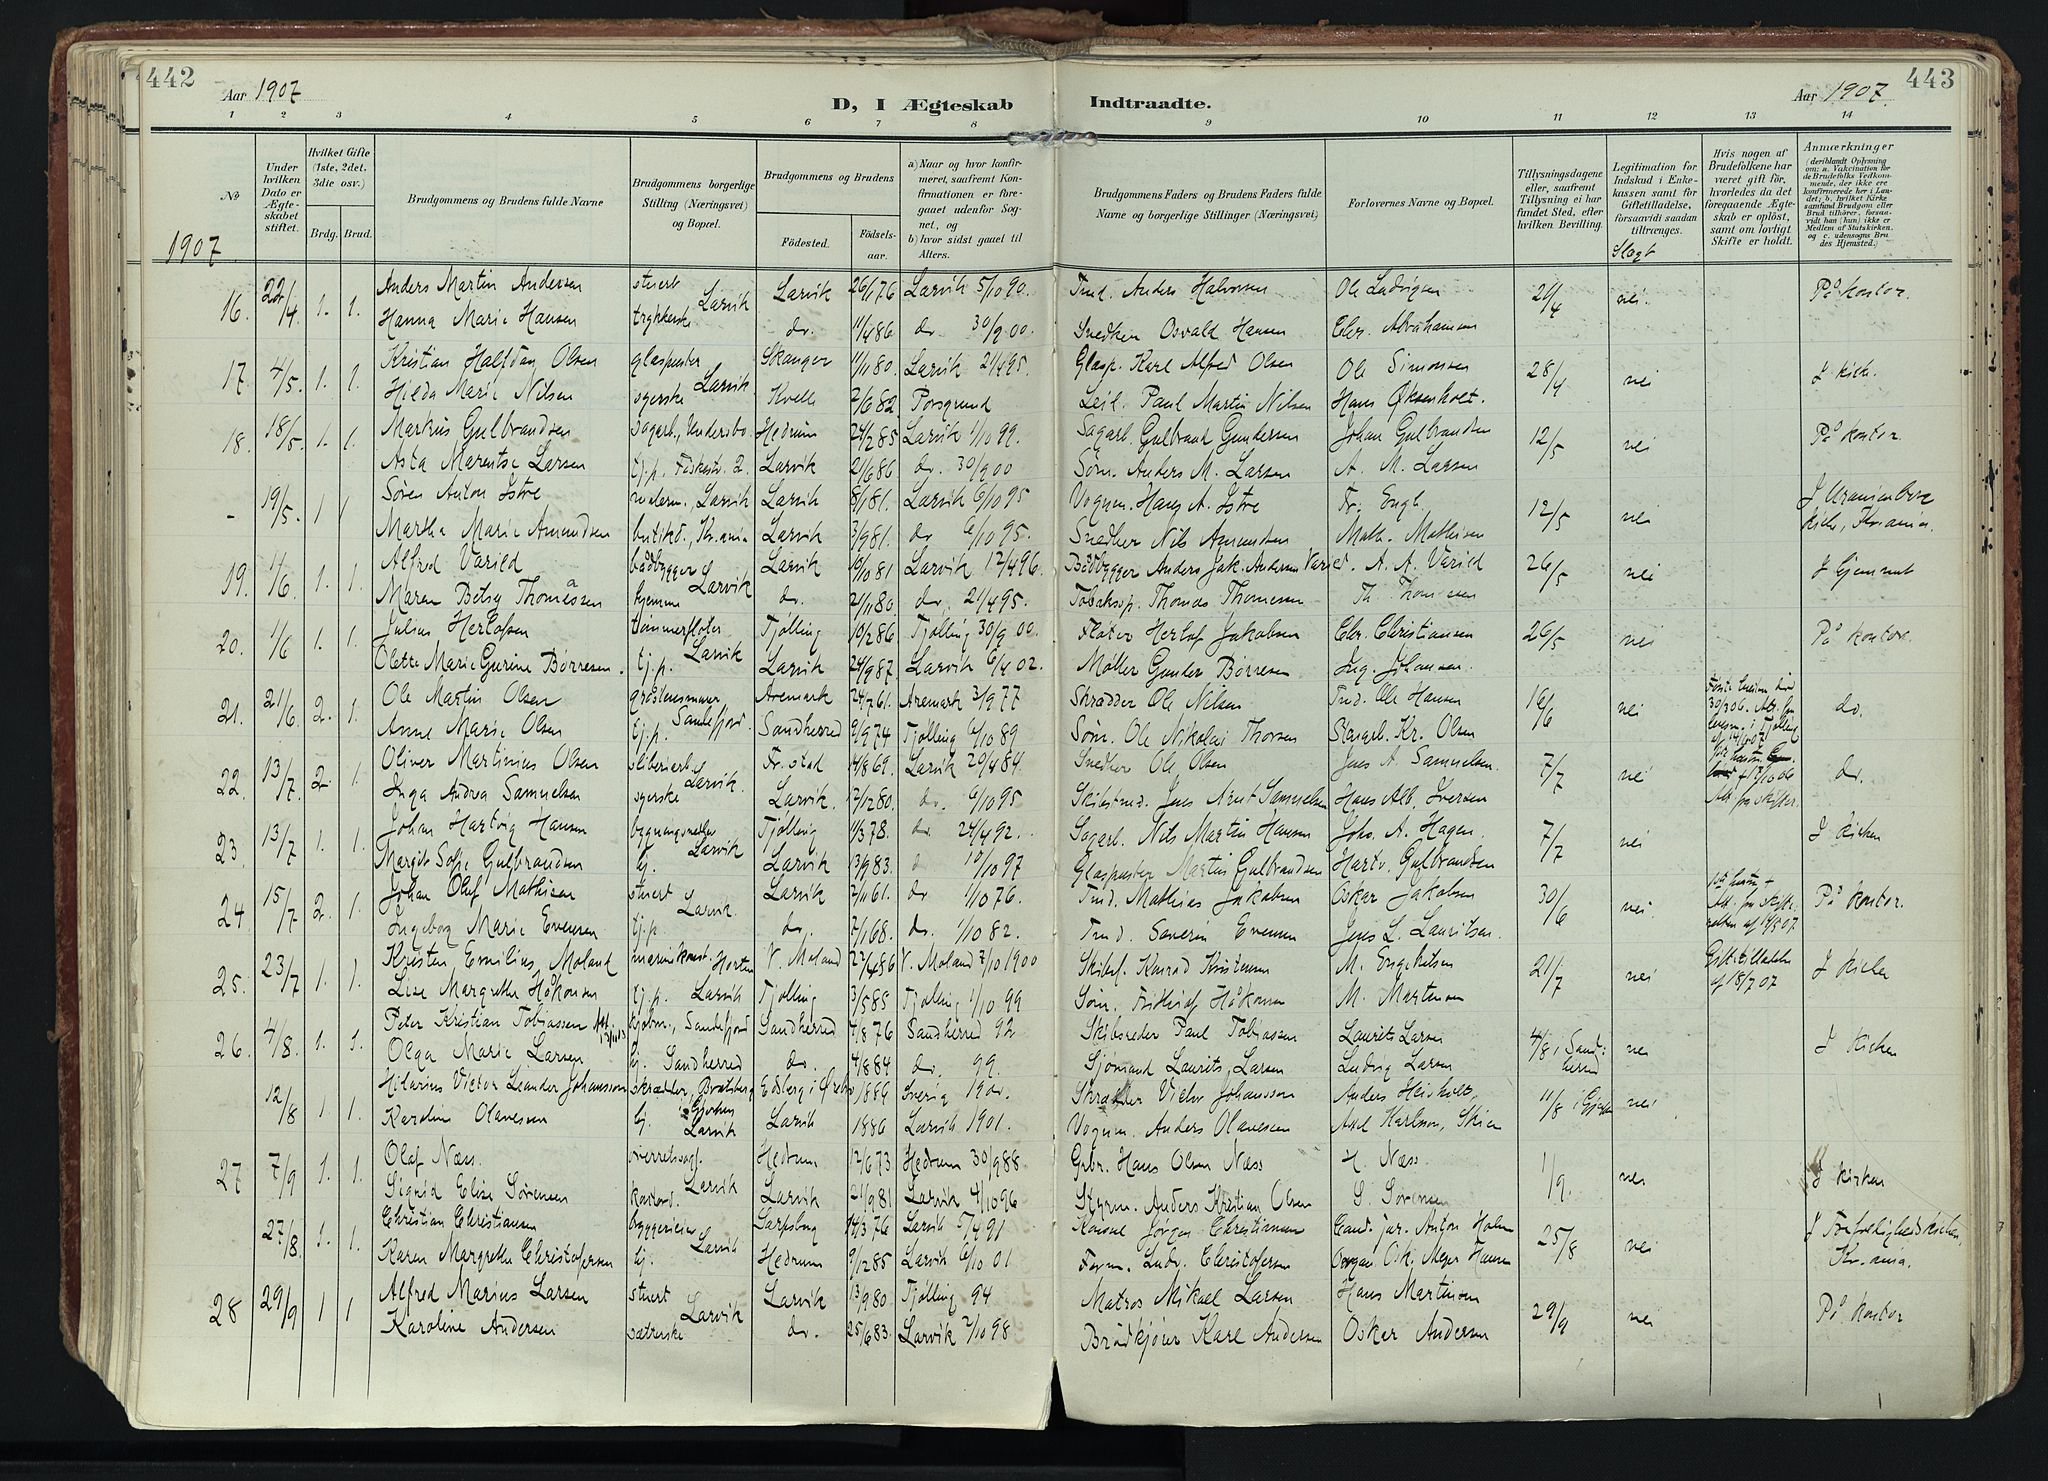 442
443
Aar 1907
D, I Ægteskab Indtraadte.
Aar 1907.
1 2 3 4 5 6 7 8 9 10 11 12 13 14
No.
Under hvilken Dato er Ægteskabet stiftet.
Hvilket Gifte (1ste, 2det, 3die osv.)
Brdg. Brud.
Brudgommens og Brudens fulde Navne
Brudgommens borgerlige Stilling (Næringsvei) og Bopæl.
Brudgommens og Brudens
Födested.
Födselsaar.
a) Naar og hvor konfirmeret, saafremt Konfirmationen er foregaaet udenfor Sognet, og
b) hvor sidst gaaet til Alters.
Brudgommens Faders og Brudens Faders fulde Navne og borgerlige Stillinger (Næringsvei)
Forlovernes Navne og Bopæl.
Tillysningsdagene eller, saafremt Tillysning ei har fundet Sted, efter hvilken Bevilling.
Legitimation for Indskud i Enkekassen samt for Giftetilladelse, forsaavidt saadan tiltrænges.
Slægt
Hvis nogen af Brudefolkene har været gift för, hvorledes da det foregaaende Ægteskab er oplöst, samt om lovligt Skifte er holdt.
Anmærkninger
(deriblandt Oplysning om: a. Vakcination for de Brudefolks Vedkommende, der ikke ere konfirmerede her i Landet; b. hvilket Kirkesamfund Brudgom eller Brud tilhörer, forsaavidt han (hun) ikke er Medlem af Statskirken, og c. udensogns Brudes Hjemsted.)
1907
16. 22/4 1. 1. Anders Martin Andersen stuert Larvik Larvik 26/1 76 Larvik 5/10 90. Tmd. Anders Halvorsen Ole Ludvigsen 21/4 nei På kontor.
Hanna Marie Hansen trykkerske do. 11/4 86 do 30/9 00. Snedker Osvald Hansen Chr. Abrahamsen
17. 4/5. 1. 1. Kristian Halfdan Olsen glaspuster Larvik Skanger 11/11 80. Larvik 21/4 95. Glasp. Karl Alfred Olsen Ole Simonsen 28/4 nei I kirk.
Hilda Marie Nilsen syerske Kvelle 7/6 82. Porsgrund Leil. Paul Martin Nilsen Hans Øksenholt.
18. 18/5. 1. 1. Markus Gulbrandsen sagarb., Undersbo Hedrum 24/2 85 Larvik 1/10 99. Sagarb. Gulbrand Gundersen Johan Gulbrandsen 12/5 nei På kontor.
Asta Marentse Larsen tj.p. Fiskestr. 2. Larvik 21/6 86 do. 30/9 00 Søm. Anders M. Larsen A. M. Larsen
- 19/5. 1 1 Søren Anton Istre Larvik Larvik 8/1 81. Larvik 6/10 95 Vognm. Hans A. Istre Fr. Engh 12/5 nei I Uranienborg
Martha Marie Amundsen butikd., Kr.ania Larvik 3/9 81. do 6/10 95. Snedker Nils Amundsen Math. Mathisen kirke, Kr.ania.
19. 1/6. 1. 1. Alfred Varild bådbygger Larvik Larvik 19/10 81 Larvik 12/4 96. Bådbygger Anders Jak. Andersen Varild. A. A. Varild 26/5 nei I hjemmet
Maren Betsy Thomassen hjemme do. 21/11 80. do. 21/4 95. Tobaksp. Thomas Thomesen Th. Thomesen
20. 1/6 1. 1. Julius Herlofsen tømmerfløter Larvik Tjølling 10/2 86 Tjølling 30/9 00. Fløter Herlof Jakobsen Chr. Christiansen 26/5 nei På kontor.
Olette Marie Gurine Børresen. tj.p. Larvik 24/9 87. Larvik 6/4 02. Møller Gunder Børresen Ing. Johansen.
21. 21/6. 2. 1. Ole Martin Olsen Sandefjord Aremark 24/7 61. Aremark 3/9 77 Skrædder Ole Nilsen Tmd. Ole Hansen 16/6 nei do.
Anne Marie Olsen tj.p. Sandherred 9/9 74 Tjølling 6/10 89 Søm. Ole Nikolai Thorsen Kr. Olsen
22. 13/7. 2. 1. Oliver Martinius Olsen sliberiarb. Larvik. Fr.stad 14/8 69. Larvik 29/4 84. Snedker Ole Olsen Jens A. Samuelsen. 7/7 nei do.
Inga Andrea Samuelsen syerske Larvik. 17/12 80. do. 6/10 95 Skibstmd. Jens Arnt Samuelsen Hans Alb. Iversen
23. 13/7 1. 1. Johan Hartvig Hansen Larvik Tjølling 11/3 78. do. 24/4 92. Sagarb. Nils Martin Hansen Johs. A. Hagen. 7/7 nei I kirken
Margit Sofie Gulbrandsen hj. Larvik 13/9 83. do 10/10 97 Glaspuster Martin Gulbrandsen Hartv. Gulbrandsen
24 15/7 2. 1. Johan Oluf Mathisen stuert Larvik. Larvik 2/11 61. do 1/10 76. Tmd. Mathias Jakobsen Oskar Jakobsen 30/6 nei. På kontor.
Ingeborg Marie Evensen tj.p do. 7/1 68. do. 1/10 82. Tmd. Severin Evensen Jens L. Lauritsen.
25. 23/7 1. 1. Kristen Emilius Moland Horten V. Moland 27/4 86 V. Moland 7/10 1900 Skibsf. Konrad Kristensen M. Engebretsen 21/7 nei Giftetilladelse af 18/7 07 I kirken
Lise Margrethe Håkonsen tj.p. Larvik Tjølling 3/5 85 Tjølling 1/10 99 Søm. Fridtjof Håkonsen M. Martinsen
26. 4/8. 1. 1. Peter Kristian Tobiassen Sandefjord Sandherred 7/8 76 Sandherred 92 Skibsreder Paul Tobiassen Laurits Larsen 4/8 i Sandherred nei I kirken
Olga Marie Larsen hj. Sandherred do. 4/8 84 do. 99. Sjømand Laurits Larsen Ludvig Larsen
12/8 1 1. Hilarius Victor Leander Johansson skrædder, Edsberg i Ørebro 1884 Sverig Skrædder Victor Johansson Anders Heirholt, 11/8 nei
Karoline Olavesen hj. Larvik Larvik 1886 Larvik 1901. Vognm. Anders Olavesen Axel Karlsson, Skien
27 7/9 1. 1. Olaf Næss. overretssagf. Larvik Hedrum 12/6 73 Hedrum 30/9 88. Grbr. Hans Olsen Næss H. Næss 1/9. nei I kirken
Sigrid Elise Sørensen kontord. Larvik 21/9 81 Larvik 4/10 96 Styrm. Anders Kristian Olsen S. Sørensen
27/8. 1. 1. Christian Christiansen Larvik Sarpsborg 14/3 76 Larvik 5/4 91 Konsul Jørgen Christiansen Cand. jur. Anton Holm 25/8 nei I Trefoldighedskirken,
Karen Margrethe Christofersen hj. Hedrum 9/12 85 Larvik 6/10 01 Forv. Ludv. Christofersen Organ. Osk. Meyer Hansen Kr.ania.
28 29/9 1 1 Alfred Marius Larsen stuert Larvik Larvik 13/9 80 Tjølling 94 Matros Mikael Larsen Hans Martinsen 29/9 nei På kontor
Karoline Andersen do. 25/6 83. Larvik 2/10 98 Brødkjører Karl Andersen Oskar Andersen